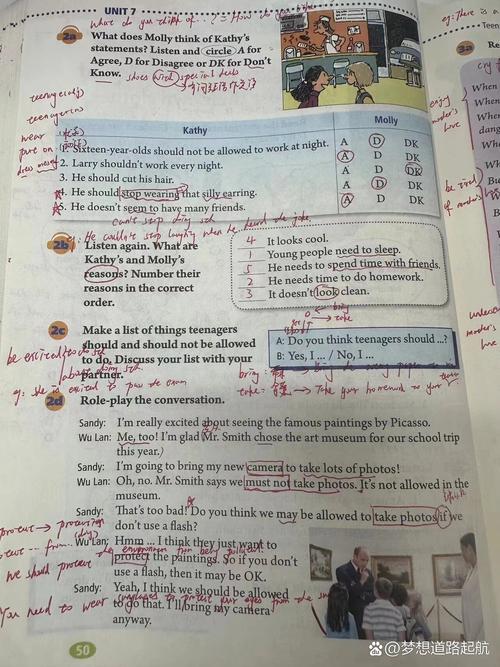 where do you think of ...? = How do you
UNIT 7
eg: There is a
Teen
2a What does Molly think of Kathy's
statements? Listen and circle A for
Agree, D for Disagree or DK for Don't
Know.
3a
When
When
When
dang
Kathy
Molly
1. Sixteen-year-olds should not be allowed to work at night. A D DK
2. Larry shouldn't work every night. A D DK
3. He should cut his hair. A D DK
4. He should stop wearing that silly earring. A D DK
5. He doesn't seem to have many friends. A D DK
wear
put on
enjoy
mother's
love
be tired
of
can't stop doing sth
eg: He couldn't stop laughing when he heard the joke.
2b Listen again. What are
Kathy's and Molly's
reasons? Number their
reasons in the correct
order.
4 It looks cool.
1 Young people need to sleep.
5 He needs to spend time with friends.
2 He needs time to do homework.
3 It doesn't look clean.
bring
take
2c Make a list of things teenagers
should and should not be allowed
to do. Discuss your list with your
partner.
A: Do you think teenagers should ...?
B: Yes, I ... / No, I ...
be excited to do sth
about doing sth
bring:
take: → Take your homework to your
2d Role-play the conversation.
Sandy: I'm really excited about seeing the famous paintings by Picasso.
Wu Lan: Me, too! I'm glad Mr. Smith chose the art museum for our school trip
this year.)
Sandy: I'm going to bring my new camera to take lots of photos!
Wu Lan: Oh, no. Mr. Smith says we must not take photos. It's not allowed in the
museum.
Sandy: That's too bad! Do you think we may be allowed to take photos if we
don't use a flash?
Wu Lan: Hmm ... I think they just want to
protect the paintings. So if you don't
use a flash, then it may be OK.
Sandy: Yeah, I think we should be allowed
to do that. I'll bring my camera
anyway.
protect → protection
we should protect the environment from being polluted.
You need to wear sunglasses to protect your eyes from the sun
50
梦想道路起航